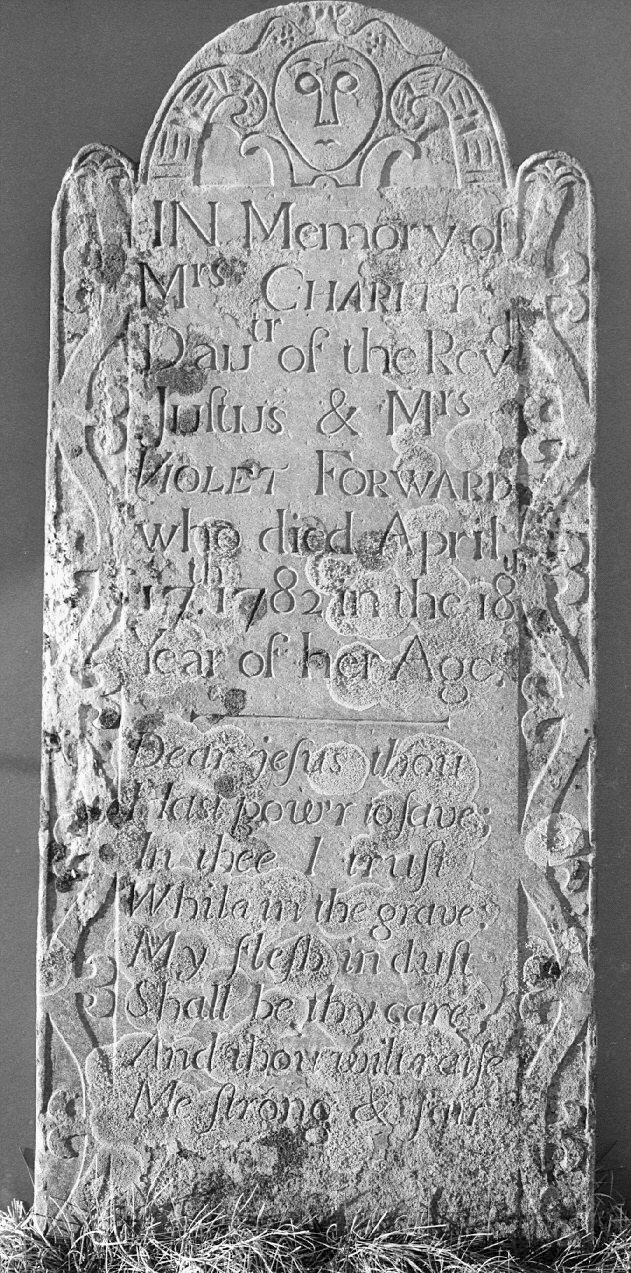 IN Memory of
Mrs CHARITY
Dautr of the Revd
Juſtus & Mrs
VIOLET FORWARD
who died April
17th 1782 in the 18th
Year of her Age.
Dear jesus thou
Haſt pow'r to ſave
In thee I truſt
While in the grave
My fleſh in duſt
Shall be thy care
And thou wilt raiſe
Me ſtrong & fair